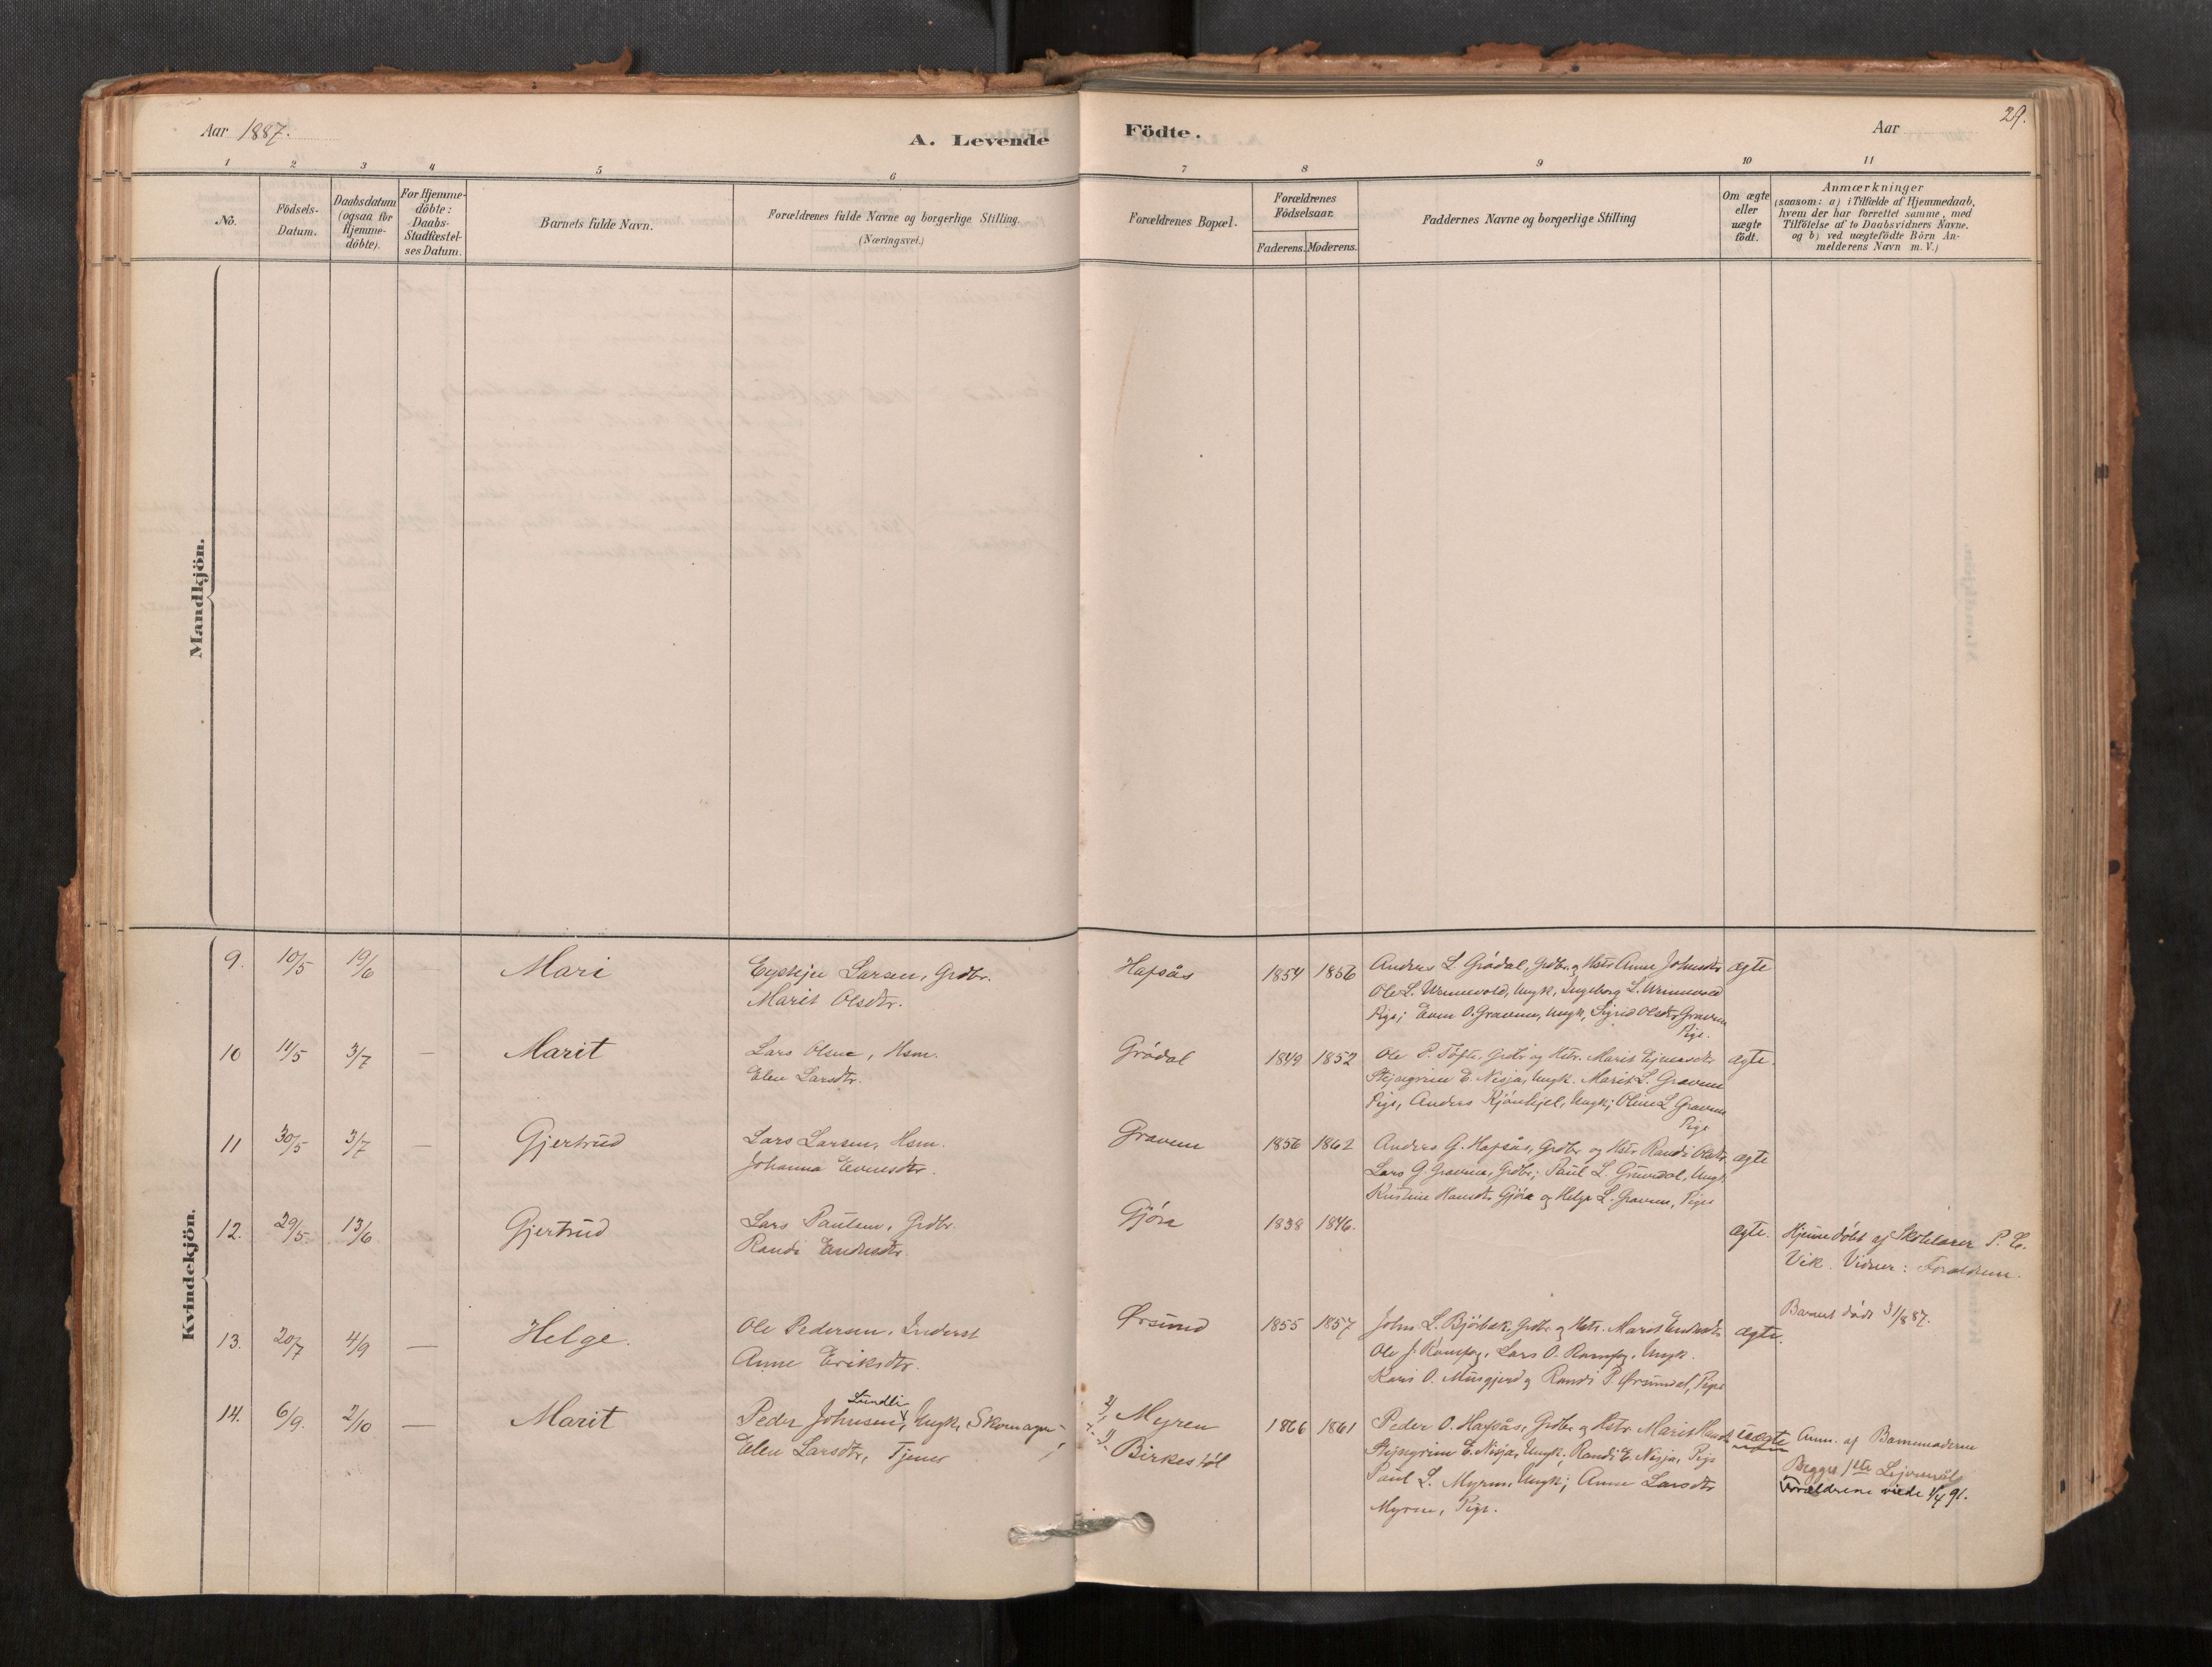 Aar 1887.
A. Levende
Födte.
Aar
29.
1 2 3 4 5 6 7 8 9 10 11
No.
Födsels-
Datum.
Daabsdatum
(ogsaa for
Hjemme-
döbte).
For Hjemme-
döbte:
Daabs-
Stadfæstel-
ses Datum.
Barnets fulde Navn.
Forældrenes fulde Navne og borgerlige Stilling.
(Næringsvei.)
Forældrenes Bopæl.
Forældrenes
Födselsaar.
Faderens. Moderens.
Faddernes Navne og borgerlige Stilling
Om ægte
eller
uægte
födt.
Anmærkninger
(saasom: a) i Tilfælde af Hjemmedaab,
hvem der har forrettet samme, med
Tilföielse af to Daabsvidners Navne.
og b) ved uægtefödte Börn An-
melderens Navn m. V.)
Mandkjön.
Kvindekjön.
9. 10/5 19/6 — Mari
Larsen, Grdbr.
Marit Olsdtr.
Hafsås 1854 1856
Anders L. Grødal, Grdbr. og Hstr. Anne Johnsdtr.
Ole L. Ungk, Ingeborg L.
Pige; Even O. Gravem, Ungk, Sigrid Olsdtr. Gravem
Pige.
ægte
10 11/5 3/7 — Marit
Lars Olsen, Hsm.
Elen Larsdtr.
Grødal 1849 1852
Ole P. Tøfte, Grdbr og Hstr. Marit
Steingrim E. Nisja, Ungk. Marit L. Gravem
Pige, Anders Ungk; Oline L. Gravem
Pige
ægte.
11 30/5 3/7 — Gjertrud
Lars Larsen, Hsm.
Johanna Evensdtr.
Gravem 1856 1862
Anders G. Hafsås, Grdbr og Hstr. Randi Olsdtr.
Lars G. Gravem, Grdbr; Paul L. Ungk
Kristine Hansdtr. Gjöra og Helge L. Gravem, Pige
ægte
12. 29/5 13/6 Gjertrud
Lars Paulsen, Grdbr.
Randi Endresdtr.
Gjöra 1838 1846.
ægte.
Hjemmedøbt af Skolelærer P. E.
Vik. Vidner: Forældrene.
Barnet död 31/8 87.
13. 20/7 4/9 — Helge.
Ole Pedersen, Inderst
Anne Eriksdtr.
Ørsund 1855 1857
John L. Bjørbæk, Grdbr og Hstr. Marit Endresdtr
Ole J. Lars O. Ungk.
Kari O. Musgjerd og Randi P. Pige
ægte.
14. 6/9. 2/10 — Marit
Lundli
Peder Johnsen, Ungk, Skomager
Elen Larsdtr, Tjener
2) Myren
1) Birkestøl
1866 1861
Peder O. Hafsås, Grdbr og Hstr. Marit Hansdtr
Steingrim E. Nisja, Ungk; Randi E. Nisja, Pige
Paul L. Myren, Ungk; Anne Larsdtr
Myren, Pige.
uægte
Anm. af Barnemoderen
Begges 1ste Leiermål
Forældrene viede 1/4 91.